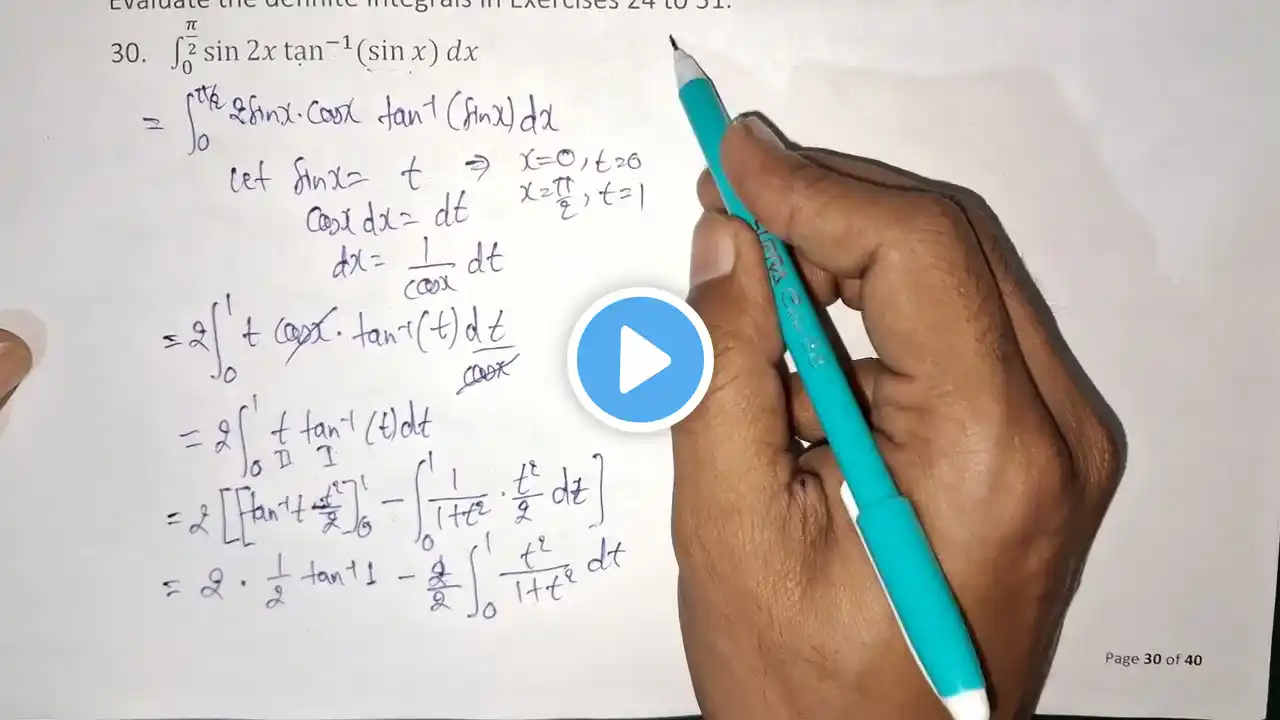 Evaluate the definite integrals in Exercises 24 to 31.
30. ∫₀^(π/2) sin 2x tan⁻¹(sin x) dx
= ∫₀^(π/2) 2sinx·cosx tan⁻¹(sinx)dx
Let sinx = t ⇒ x=0, t=0
x=π/2, t=1
cosx dx = dt
dx = 1/cosx dt
= 2∫₀¹ t cosx · tan⁻¹(t) dt/cosx
= 2∫₀¹ t tan⁻¹(t)dt
II I
= 2[[tan⁻¹t t²/2]₀¹ − ∫₀¹ 1/(1+t²) · t²/2 dt]
= 2 · 1/2 tan⁻¹1 − 2/2 ∫₀¹ t²/(1+t²) dt
Page 30 of 40